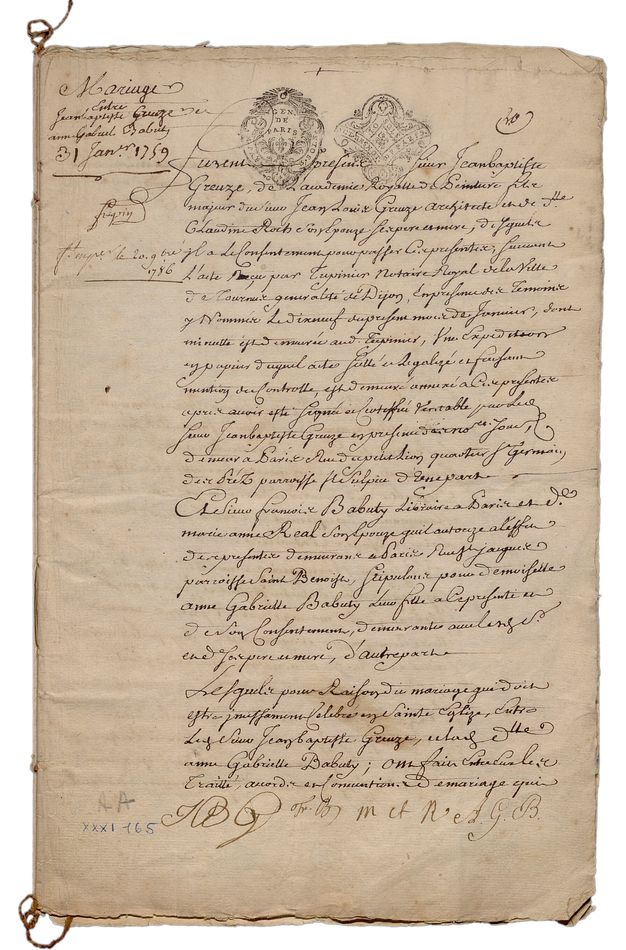 Mariage
Entre
Jean baptiste Greuze et
anne Gabriel Babuty
31 Janer 1759
GEN
DE
PARIS
furent presens Sieur Jean baptiste
Greuze, de L'academie Royalle de Peinture fils
majeur du Sieur Jean Louis Greuze Architecte et de Dlle
Claudine Roch son Epouze ses pere et mere, desquels
il a Le Consentement pour passer Ces presentes, suivant
L'acte Reçu par Tupinier Notaire Royal de la Ville
de Tournus generalité de Dijon, En presence des Temoins
y Nommés Le dix neuf du present mois de Janvier, dont
minutte est demeurée aud. Tupinier, Une Expedition
en papier duquel acte Scellé et Legalizé et faisant
mention du Controlle, est demeuré annexé a Ces presentes
apres avoir esté Signé et Certiffié Veritable par Led.
Sieur Jean baptiste Greuze en presence des nores Sous.
demeurt a Paris Rue du petit Lion quartier St Germain
des Prez parroisse St Sulpice d'Une part
Et Sieur francois Babuty Libraire a Paris et De
marie anne Real son Epouze qu'il autorize a l'effet
des presentes demeurans a Paris Rue St Jacques
parroisse Saint Benoist, Stipulans pour demoiselle
anne Gabrielle Babuty Leur fille a Ce presente et
de Son Consentement, demeurante avec Lesd. Sr
et De ses pere et mere, d'autre part
Lesquels pour Raison du mariage qui doit
estre incessament Celebré en Sainte Eglize, Entre
Led. Sieur Jean baptiste Greuze, et lad. Dlle
anne Gabrielle Babuty; ont fait Entre Eux les
Traitté, accords et Conventions de mariage qui
AA
XXXI 165
JBG fr. B m et R et A. G. B.